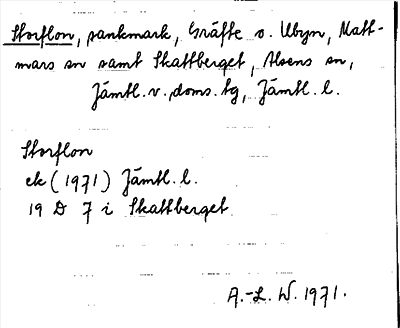 Storflon, sankmark, Gräfte o. Ubyn, Matt-
mars sn samt Skattberget, Alsens sn,
Jämtl. v. doms. tg, Jämtl. l.
Storflon
ek (1971) Jämtl. l.
19 D 7 i Skattberget
A.-L. W. 1971.